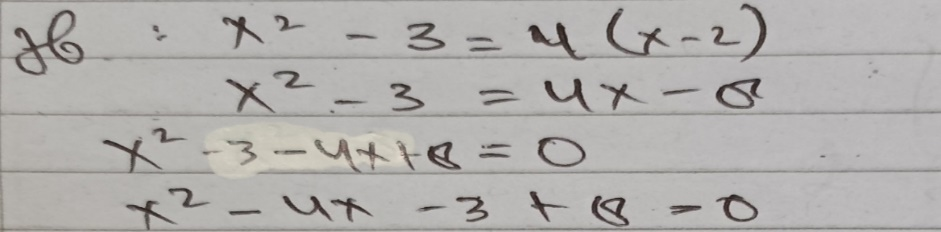 : x² - 3 = 4 (x-2)
x² - 3 = 4x - 8
x² - 3 - 4x + 8 = 0
x² - 4x - 3 + 8 = 0